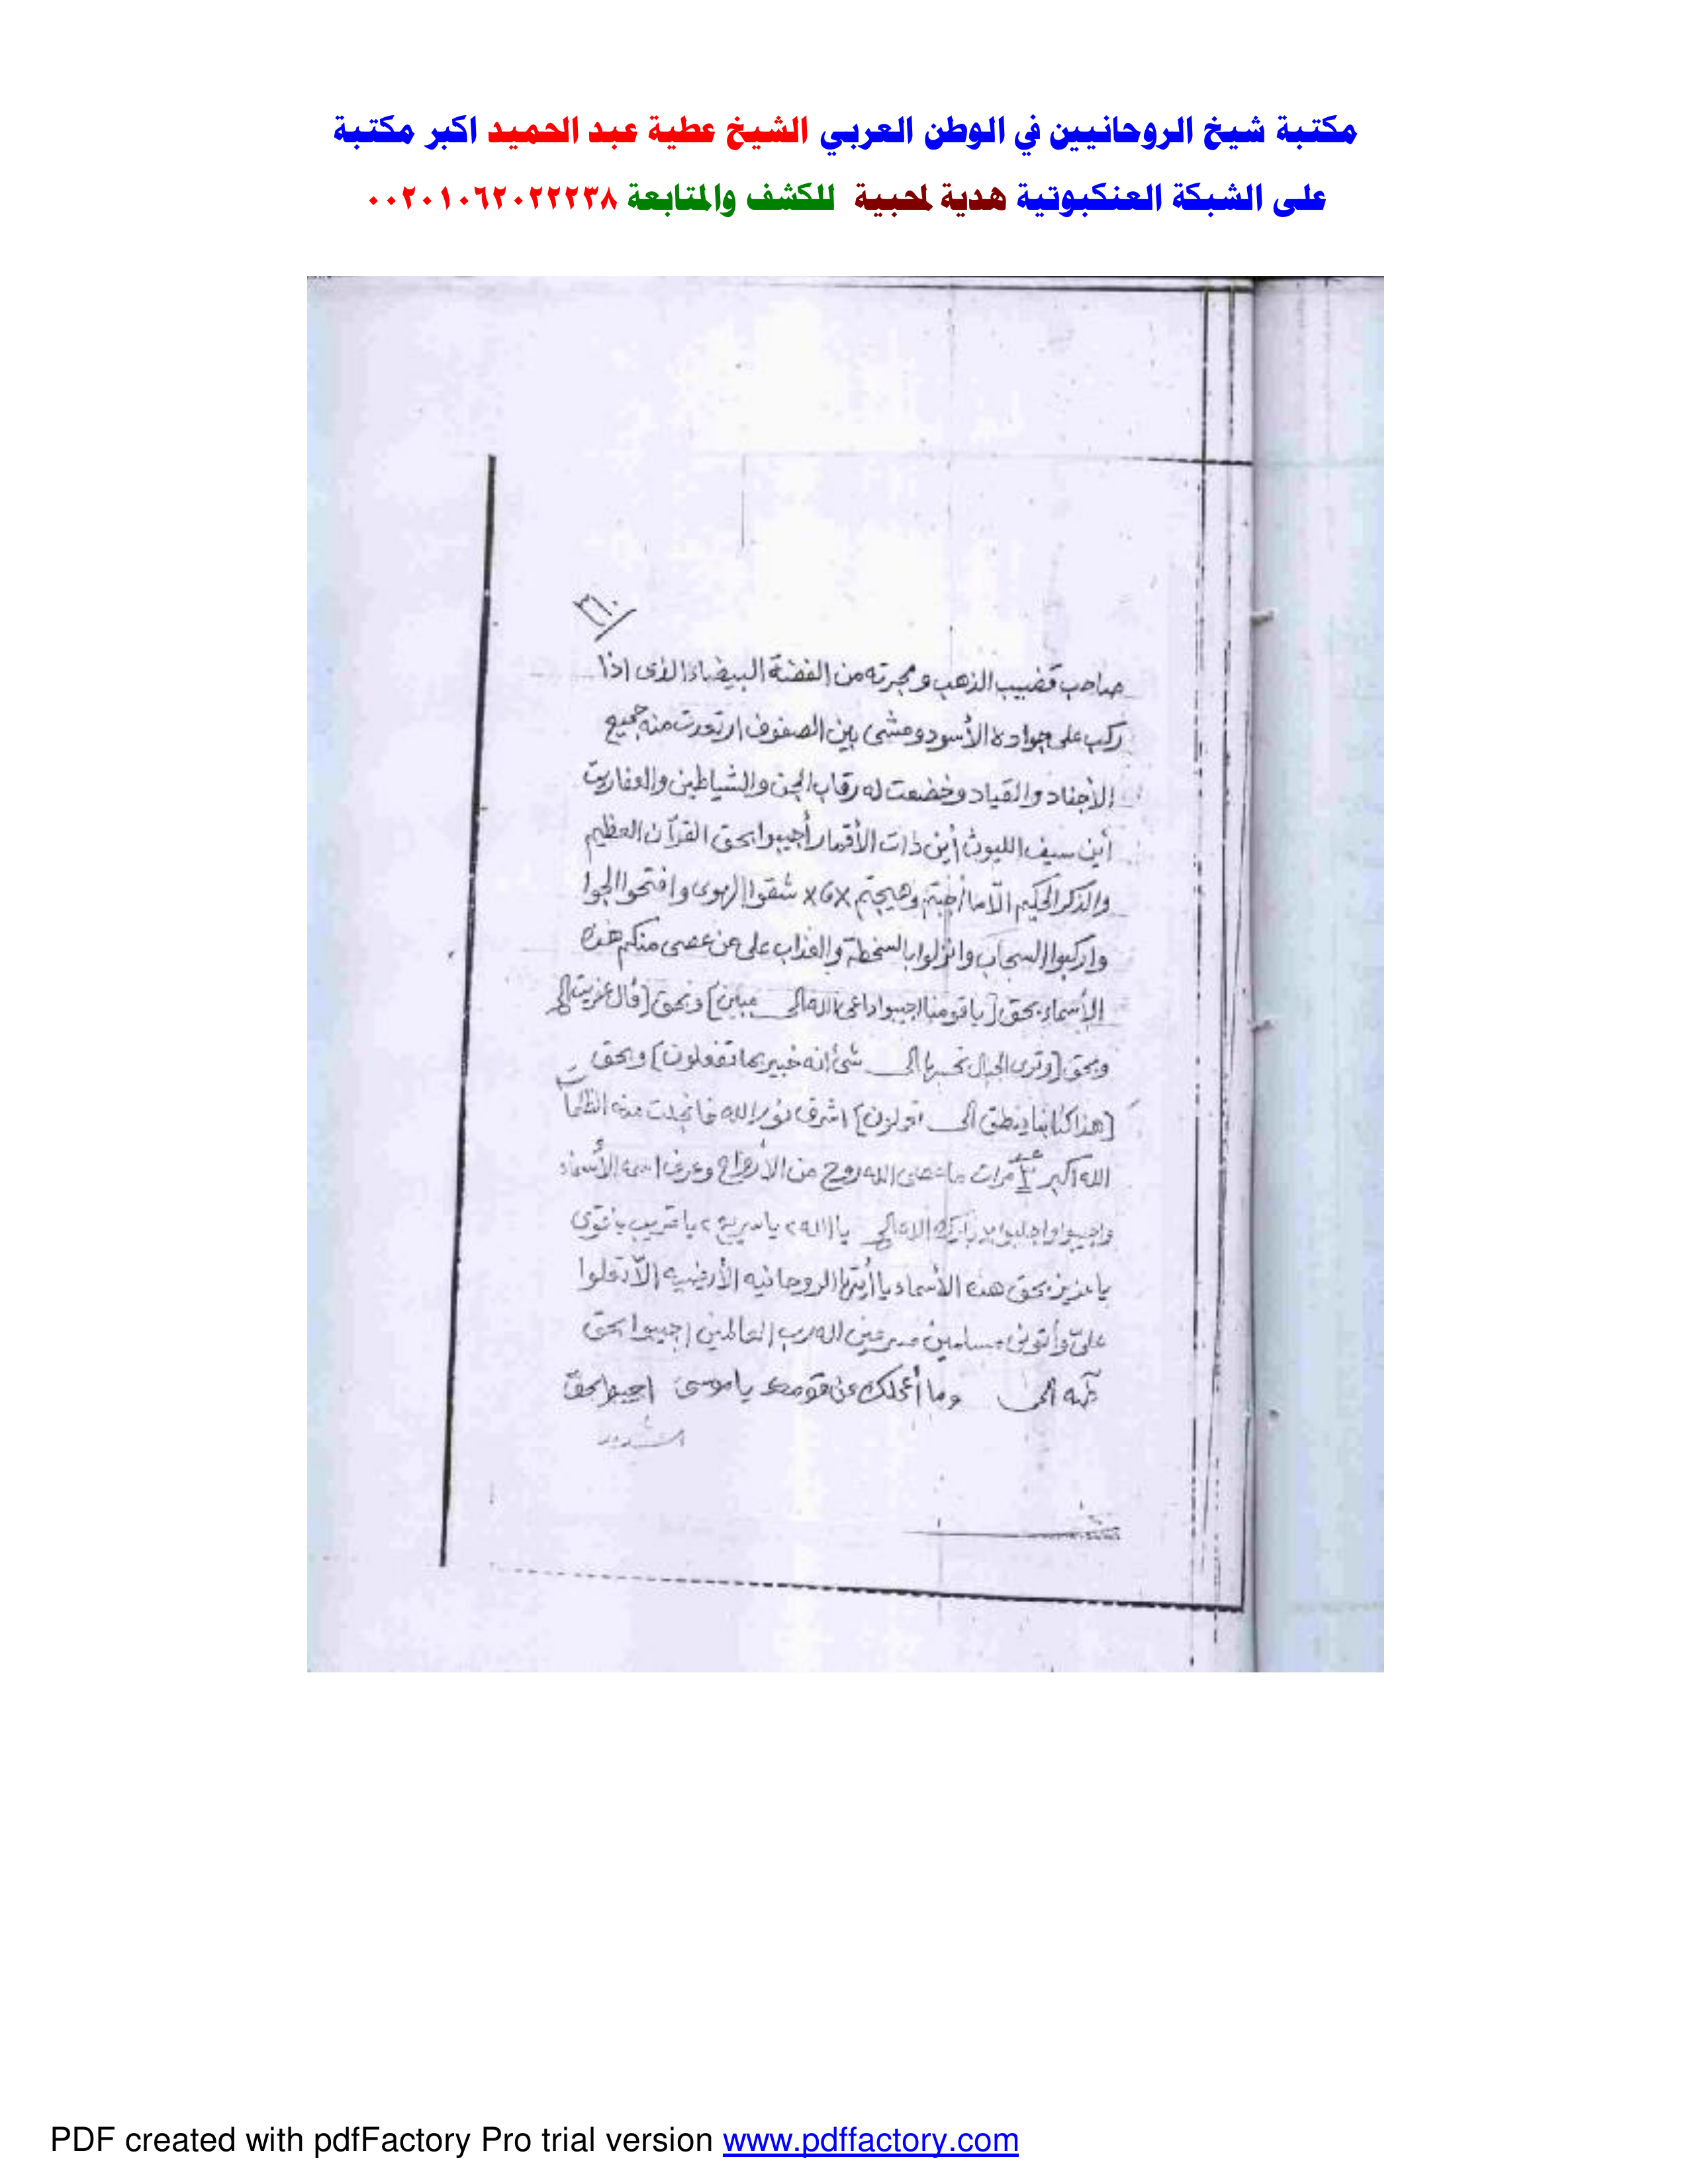 مكتبة شيخ الروحانيين في الوطن العربي الشيخ عطية عبد الحميد اكبر مكتبة
على الشبكة العنكبوتية هدية لمحبية للكشف والمتابعة ٠٠٢٠١٠٦٢٠٢٢٢٣٨
٣٦٠
صاحب قضيب الذهب ومجرته من الفضة البيضاء الذى اذا
ركب على جواده الأسود ومشى بين الصفوف ارتعدت منه جميع
الأجناد والقياد وخضعت له رقاب الجن والشياطين والعفاريت
أين سيف الليوث أين ذات الأقمار أجيبوا بحق القرآن العظيم
والذكر الحكيم الّا ما أجبتم وهيجتم شقوا الهوى وافتحوا الجوا
واركبوا السحاب وانزلوا بالسخطة والعذاب على من عصى منكم هذه
الأسماء بحق [ياقومنا اجيبوا داعى الله الى مبين] وبحق [قال عفريت الى
وبحق [وترى الجبال تحسبها الى شئ انه خبير بما تفعلون] وبحق
[هذا كتابنا ينطق الى اشرق نور الله فانجلت منه
الله اكبر مرات ما عصى الله روح من الأرواح وعرف اسمه الأسماء
واجيبوا الى يا الله ٢ يا سريع ٢ يا قريب يا قوى
يا عزيز بحق هذه الأسماء يا أيتها الروحانيه الأرضيه الّا تعلوا
علىّ وأتونى مسلمين مسرعين لله رب العالمين اجيبوا بحق
الى وما أعجلك عن قومك يا موسى اجيبوا بحق
PDF created with pdfFactory Pro trial version www.pdffactory.com